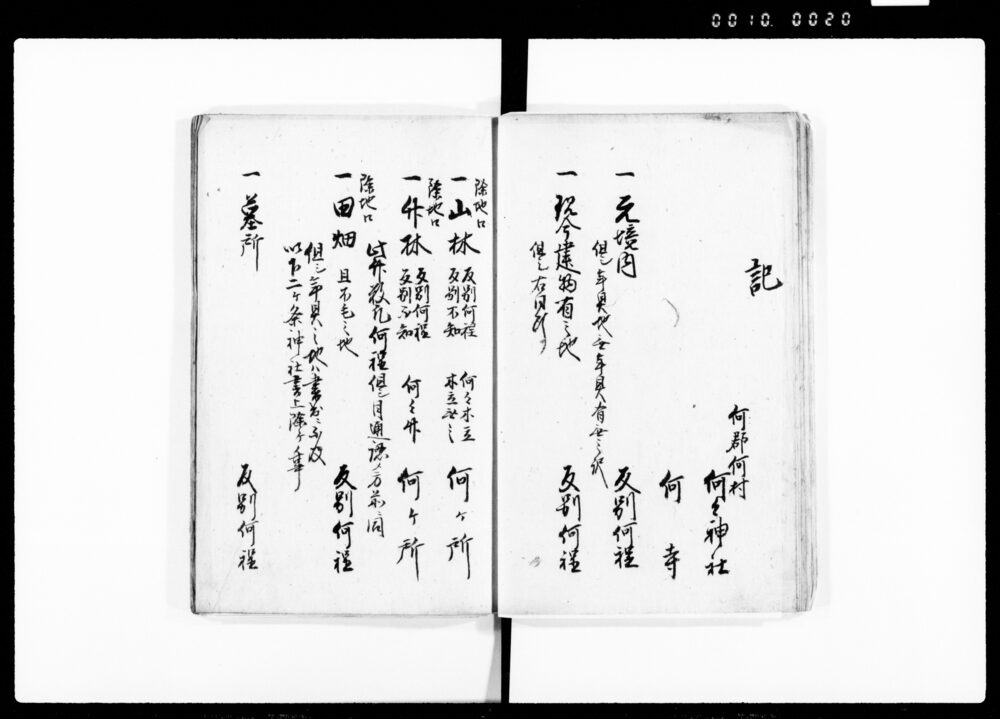 0010.0020
記
何郡何村
何々神社
何寺
一元境内 反別何程
但シ年貢地無年貢有無之訳
一現今建物有之地 反別何程
但シ右同断
除地口
一山林 反別何程 何々木立 何ヶ所
反別不知 木立無之
除地口
一竹林 反別何程 何々竹 何ヶ所
反別不知
此竹数凡何程但シ目通
除地口
一田畑 且不毛之地 反別何程
但シ年貢之地ハ書出ニ不及
以下二ヶ条神社書上除ク事
一墓所 反別何程